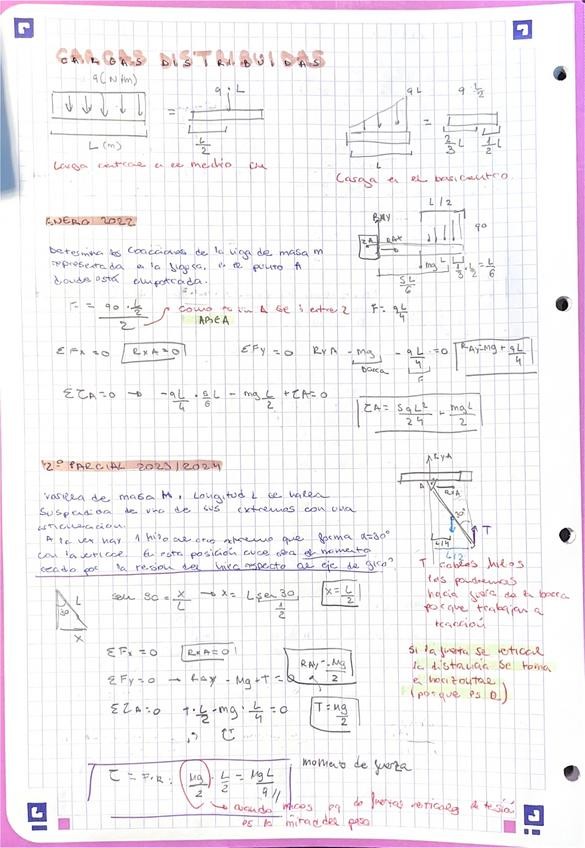 CARGAS DISTRIBUIDAS
q (N/m)
q · L
=
L/2
L (m)
qL
q · L/2
=
L
2/3 L
Carga en el baricentro
ENERO 2022
Determina las coacciones de la viga de masa m
representada en la figura,
donde está empotrada.
L/2
RAY
RAX
mg
5L/6
1/3 · L/2 = L/6
F = q0 · L/2 / 2
AREA
F = qL/4
ΣFx = 0 RXA = 0
ΣFy = 0 RYA - mg - qL/4 = 0
RAY = mg + qL/4
barra
F
ΣζA = 0 → -qL/4 · 5L/6 - mg L/2 + ζA = 0
ζA = 5qL²/24 + mgL/2
2º PARCIAL 2023/2024
Varilla de masa M, longitud L se halla
suspendida de uno de sus extremos con una
articulación.
A la vez hay 1 hilo al otro extremo que forma α=30°
con la vertical. En esta posición cuál es el momento
creado por la tensión del hilo respecto al eje de giro?
RYA
A
RXA
30°
T
L/4
L/2
T cables hilos
los pondremos
hacia fuera de la barra
porque trabajan a
tracción
30
L
X
sen 30 = x/L → x = L sen 30
1/2
x = L/2
ΣFx = 0 RXA = 0
ΣFy = 0 → RAY - Mg + T = 0
RAY = Mg/2
ΣζA = 0 T · L/2 - mg · L/4 = 0
T = Mg/2
Si la fuerza es vertical
la distancia se toma
en horizontal
(porque es ⊥)
ζ = F·R = Mg/2 · L/2 = MgL/4
momento de fuerza
es la mitad del peso